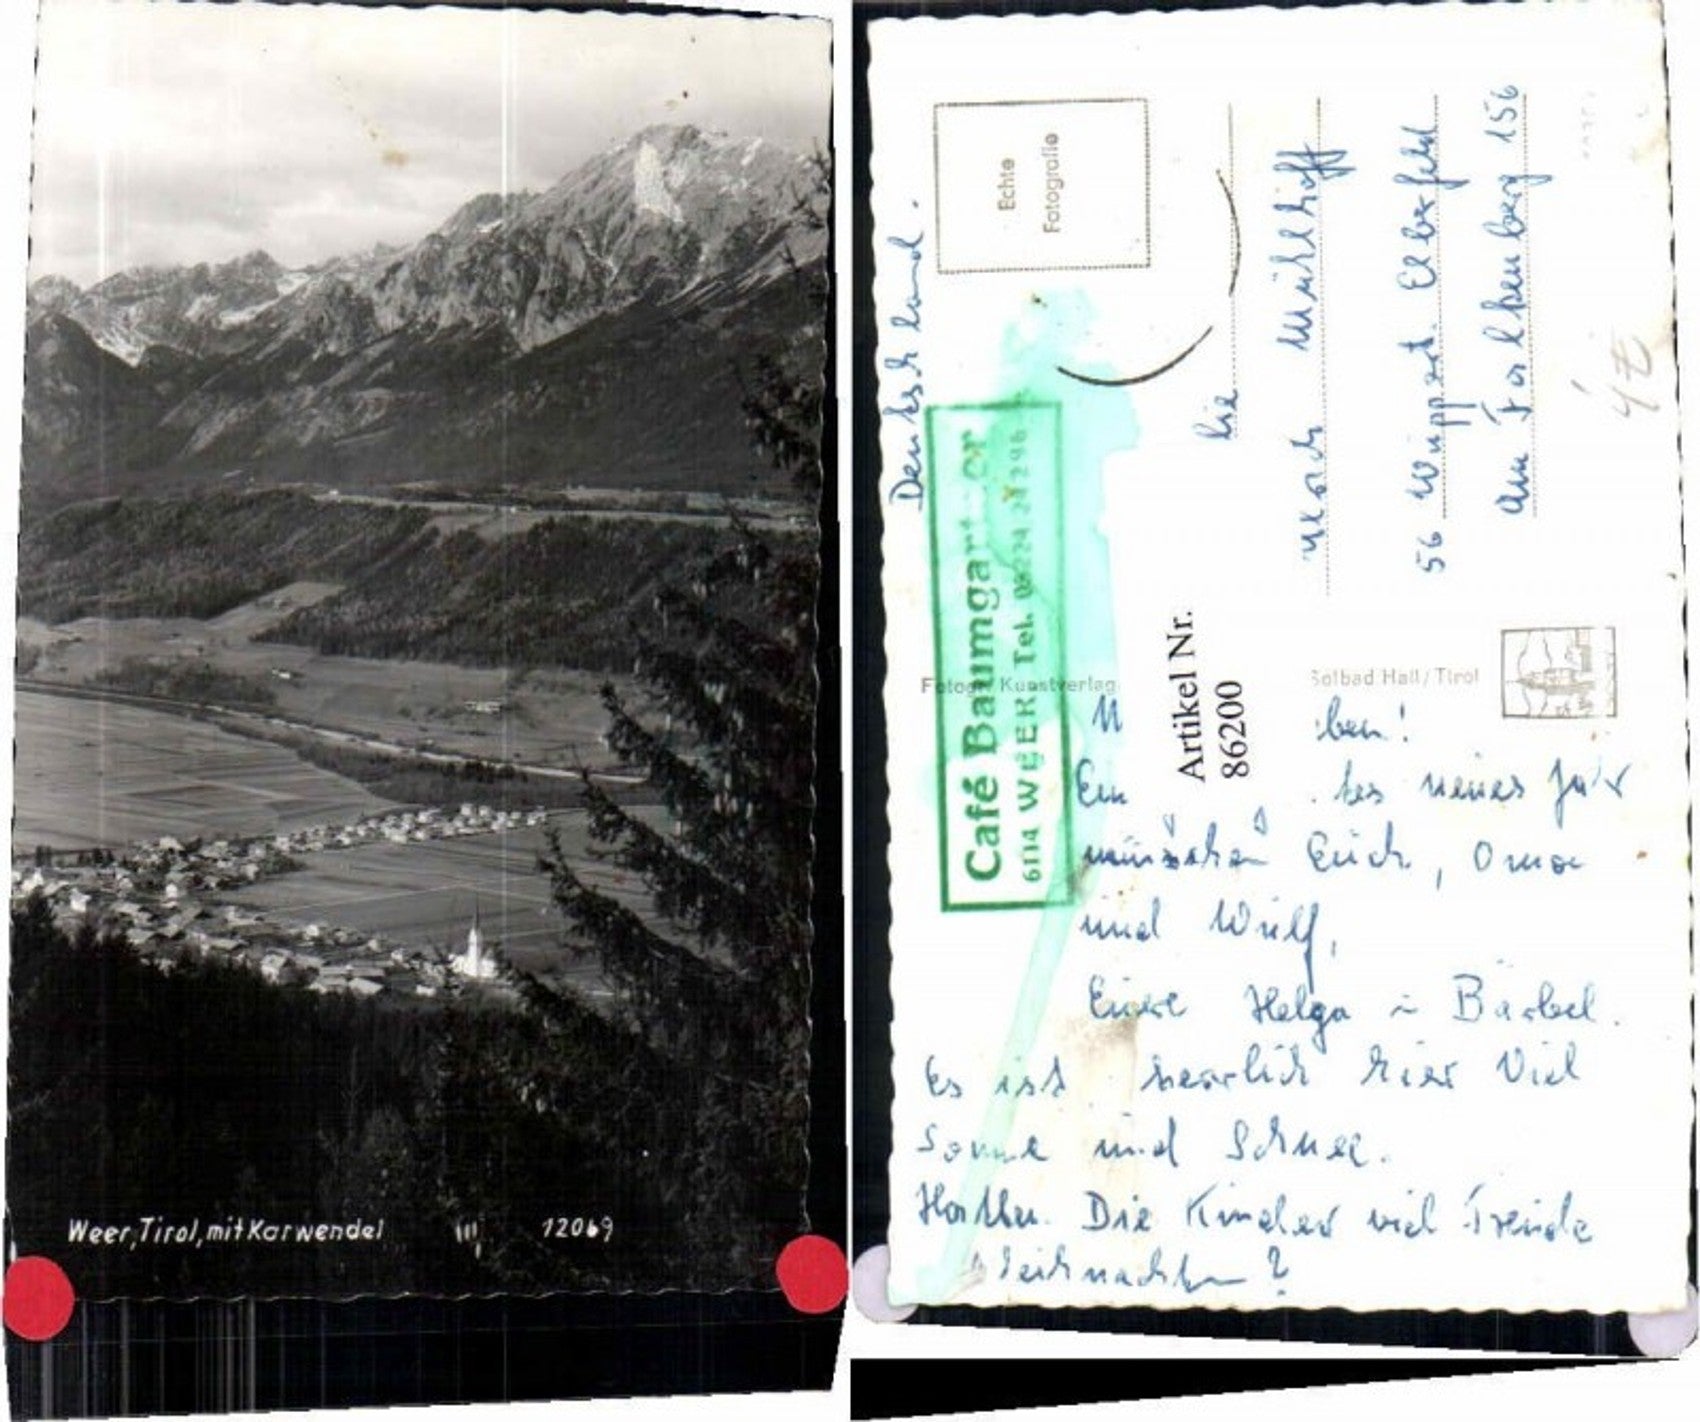 Weer, Tirol, mit Karwendel
12069
Echte
Fotografie
Deutschland.
Café Baumgartner
6114 WEER Tel.
Kunstverlag
Solbad Hall/Tirol
Artikel Nr.
86200
Mühlhoff
56 Wuppert. Elberfeld
Am Falkenberg 156
ben!
Ein tes neues Jahr
wünschen Euch, Oma
und Wulf,
Eure Helga u Bärbel.
Es ist herrlich hier Viel
Sonne und Schnee.
Hatten Die Kinder viel Freude
Weihnachten?